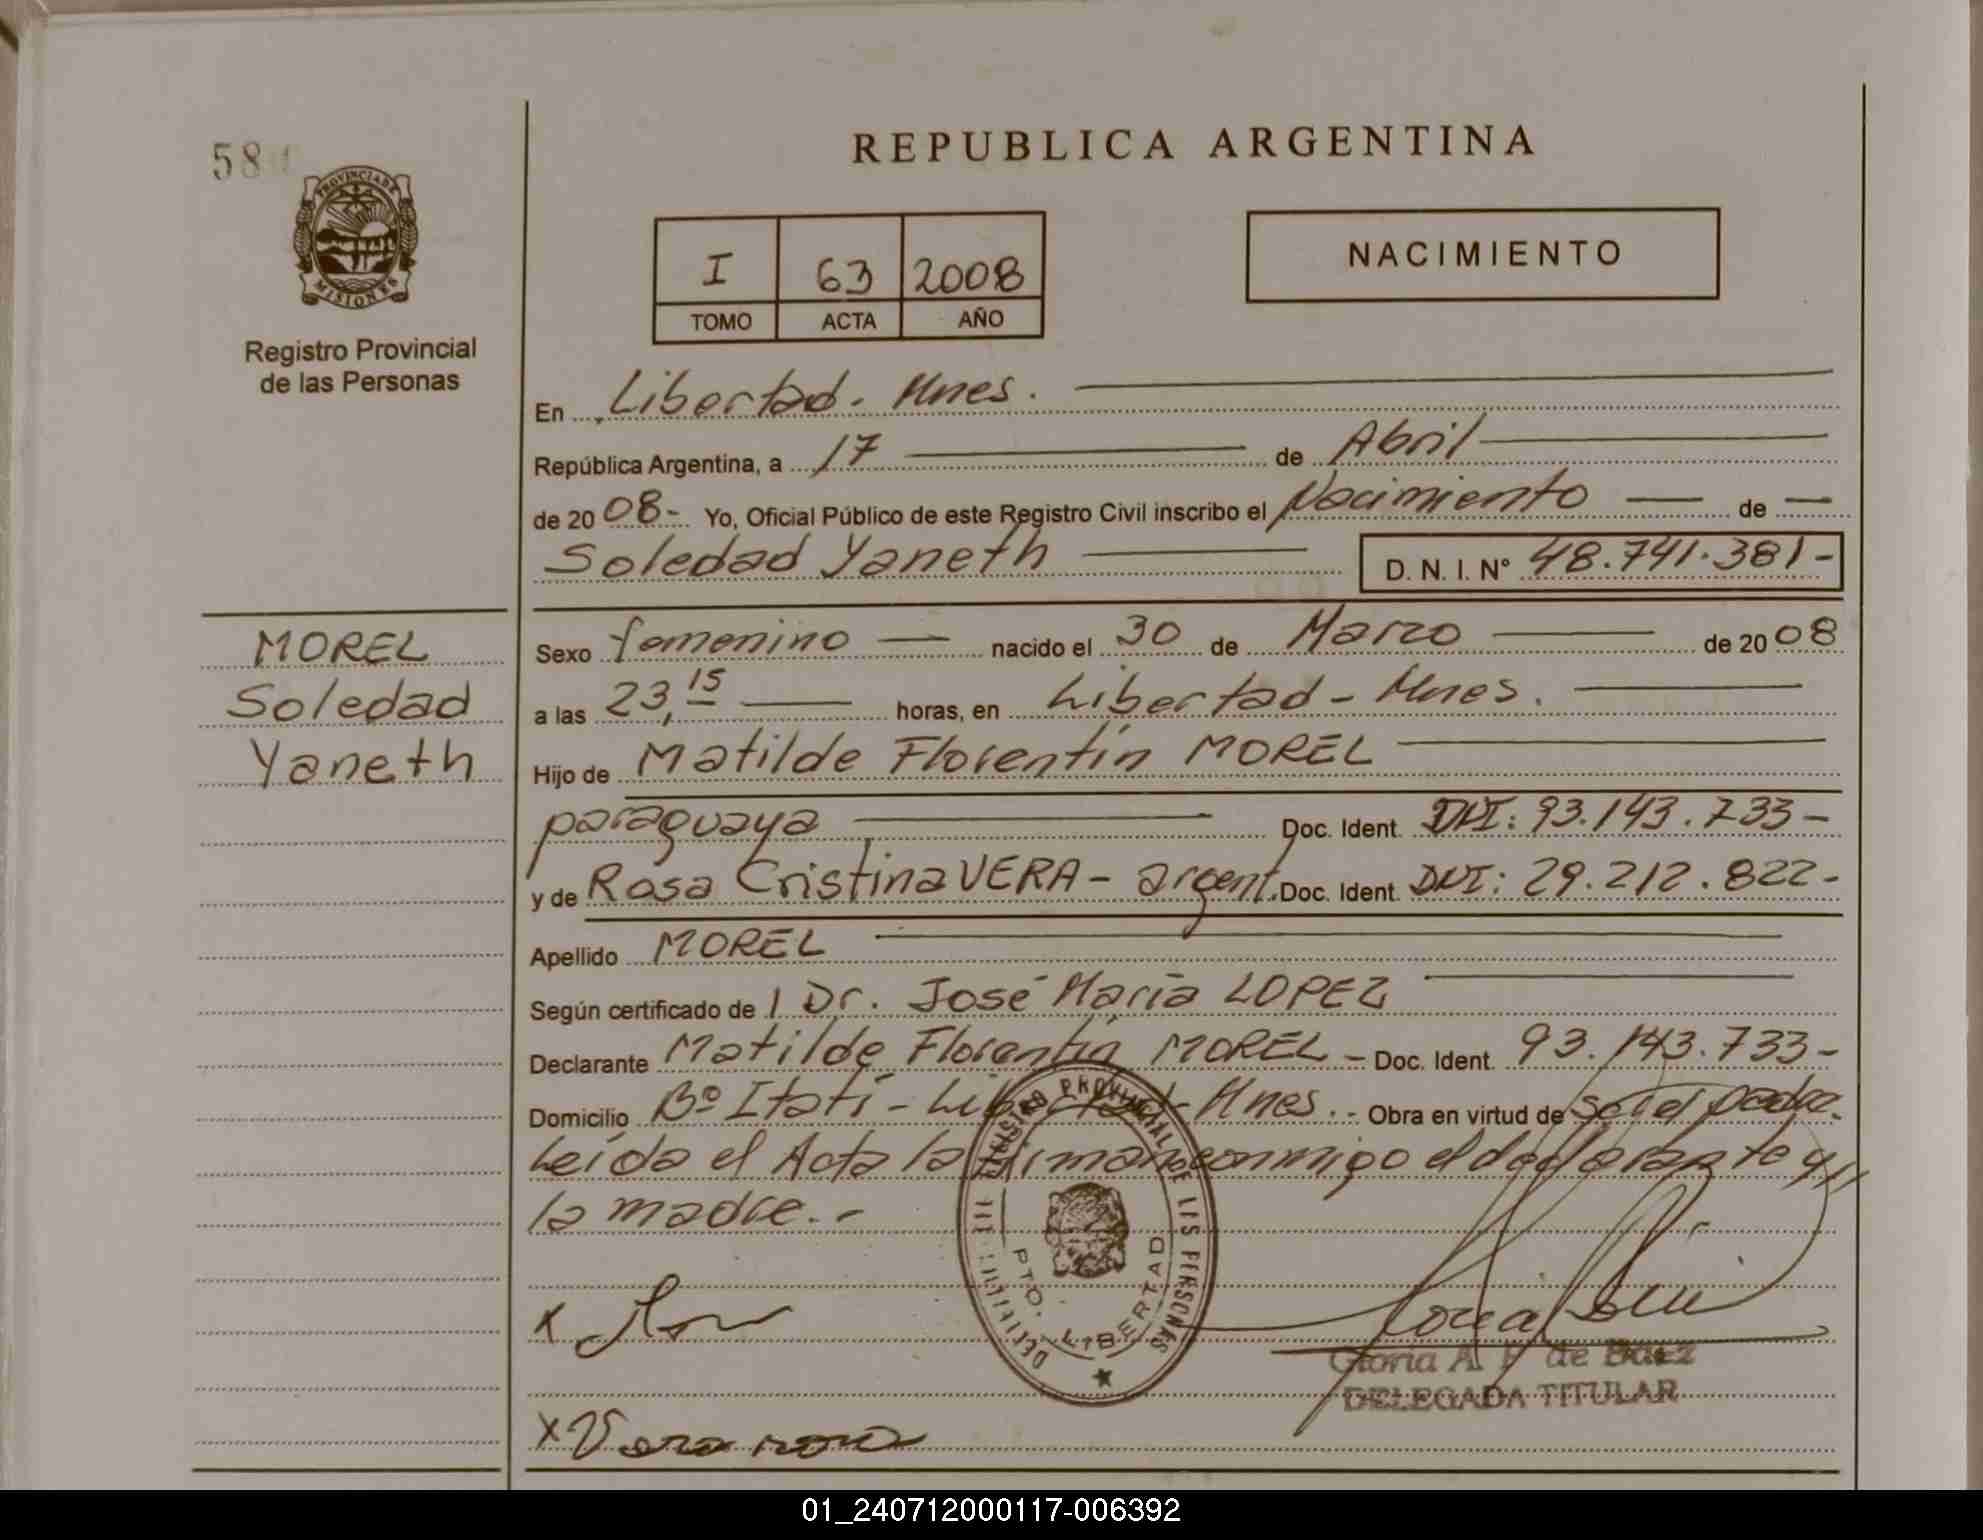 58
PROVINCIA DE
MISIONES
Registro Provincial
de las Personas
REPUBLICA ARGENTINA
I 63 2008
TOMO ACTA AÑO
NACIMIENTO
En Libertad - Mnes.
República Argentina, a 17 de Abril
de 2008- Yo, Oficial Público de este Registro Civil inscribo el Nacimiento de
Soledad Yaneth D. N. I. N° 48.741.381-
MOREL
Soledad
Yaneth
Sexo femenino nacido el 30 de Marzo de 2008
a las 23,15 horas, en Libertad - Mnes.
Hijo de Matilde Florentín MOREL
paraguaya Doc. Ident. DNI: 93.143.733-
y de Rosa Cristina VERA - argent. Doc. Ident. DNI: 29.212.822-
Apellido MOREL
Según certificado de 1 Dr. José María LOPEZ
Declarante Matilde Florentín MOREL - Doc. Ident. 93.143.733-
Domicilio Bº Itatí - Libertad - Mnes. - Obra en virtud de ser el padre.
Leída el Acta la firman conmigo el declarante y
la madre. -
PROVINCIAL DE LAS PERSONAS
PTO. LIBERTAD
x
x Vera rosa
Gloria A. F. de Baez
DELEGADA TITULAR
01_240712000117-006392